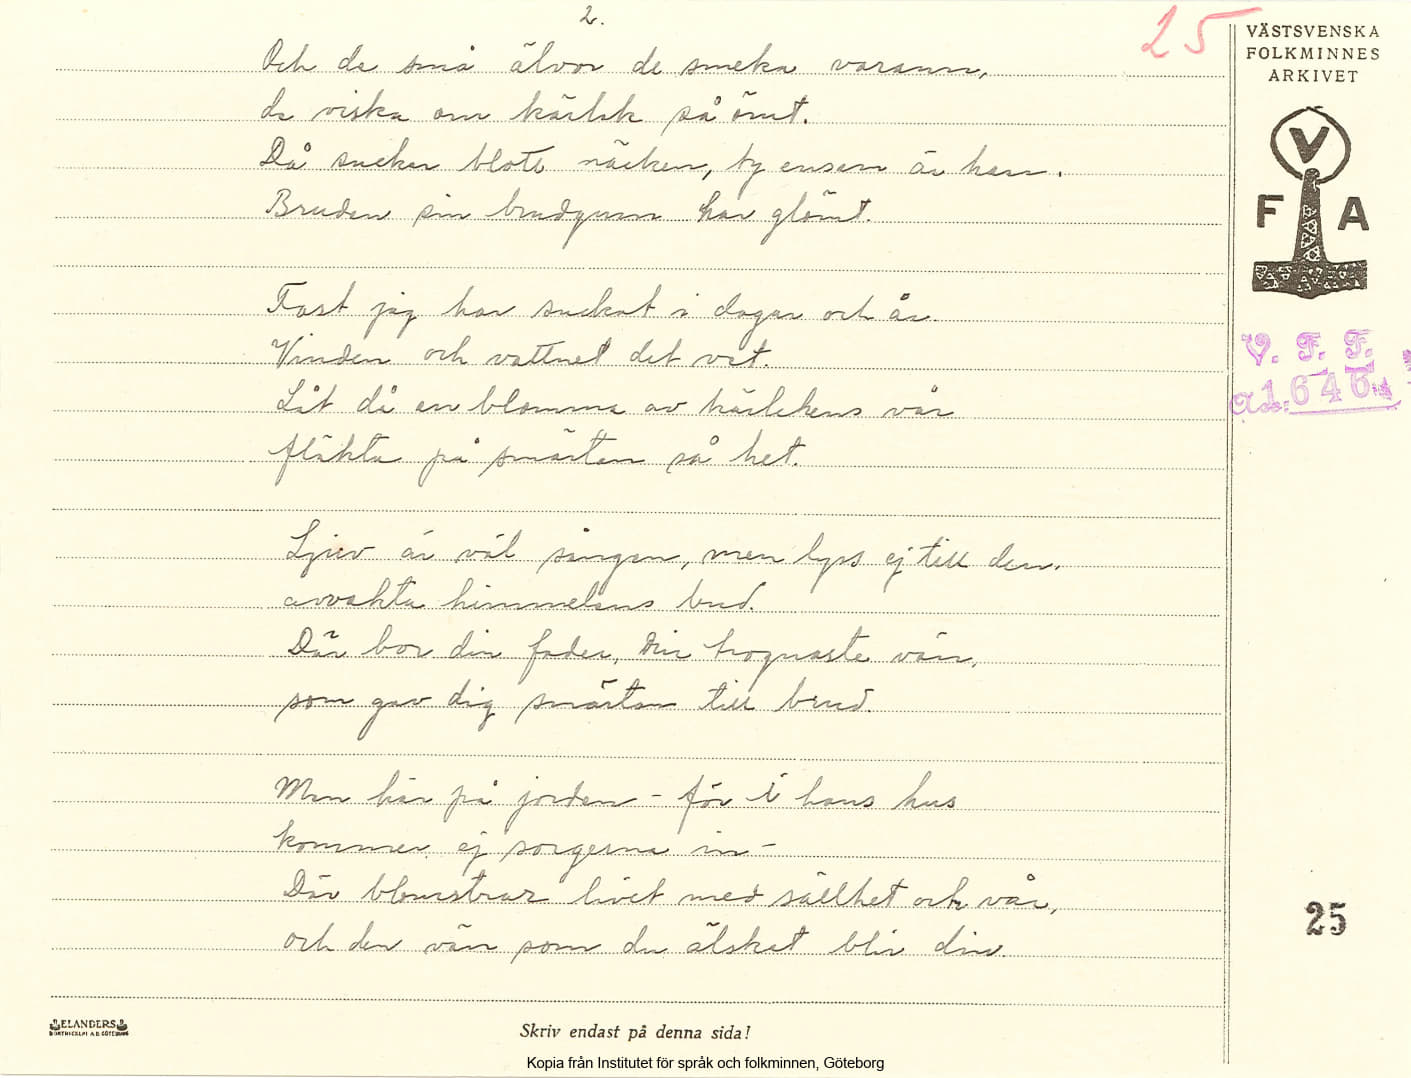 2.
25
VÄSTSVENSKA
FOLKMINNES
ARKIVET
V
F A
V. F. F.
Acc. 1646
Och de små älvor de smeka varann,
de viska om kärlek så ömt.
Då suckar blott näcken, ty ensam är han.
Bruden sin brudgum har glömt.
Fast jag har suckat i dagar och år.
Vinden och vattnet det vet.
Låt då en blomma av kärlekens vår
fläkta på smärtan så het.
Ljuv är väl sången, men lyss ej till den.
avvakta himmelens bud.
Där bor din fader, din trognaste vän,
som gav dig smärtan till brud.
Men här på jorden - för i hans hus
kommer ej sorgerna in -
Där blomstrar livet med sällhet och vår,
och den vän som du älskat blir din.
25
ELANDERS
Skriv endast på denna sida!
Kopia från Institutet för språk och folkminnen, Göteborg